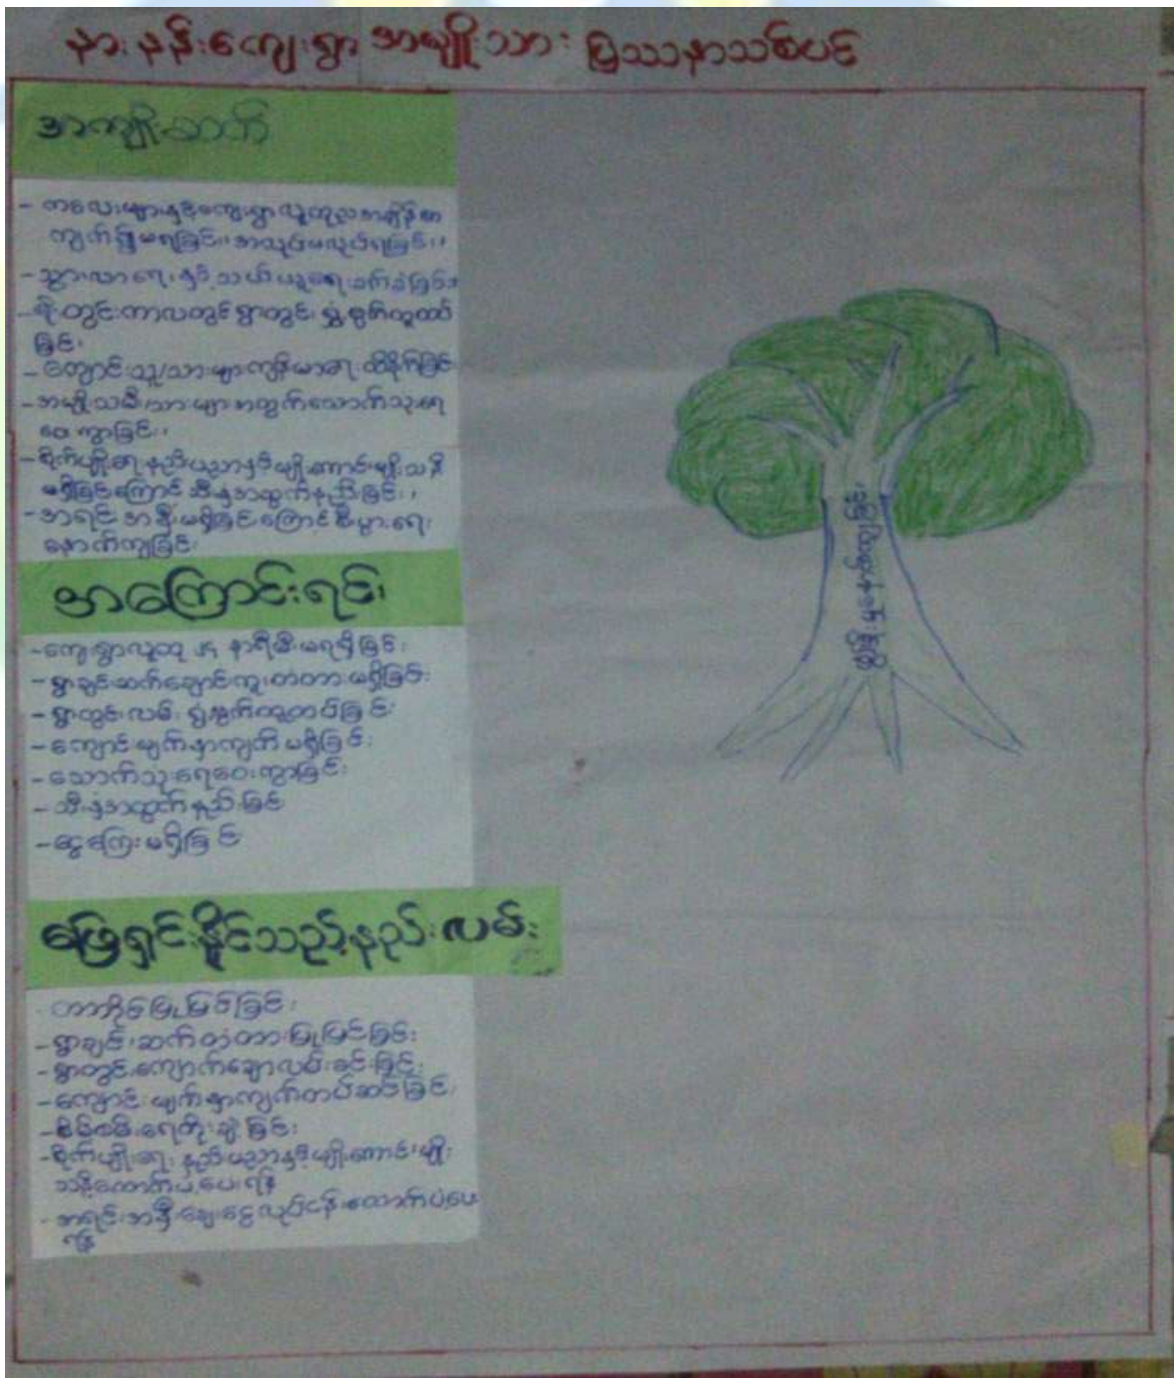 နား နန်းကျေးရွာ အမျိုးသား ပြဿနာသစ်ပင်
အကျိုးဆက်
- ကလေးများနှင့်ကျေးရွာလူထုညအချိန်စာ
ကျက်၍မရခြင်း၊ အလုပ်မလုပ်ရခြင်း၊
- သွားလာရေးနှင့် သယ်ယူရေးခက်ခဲခြင်း၊
- မိုးတွင်းကာလတွင် ရွာတွင်း ရွှံ့နွံထူထပ်
ခြင်း၊
- ကျောင်းသူ/သားများကျန်းမာရေးထိခိုက်ခြင်း
- အမျိုးသမီး/သားများအတွက်သောက်သုံးရေ
ဝေးကွာခြင်း၊
- စိုက်ပျိုးရေးနည်းပညာနှင့်မျိုးကောင်းမျိုးသန့်
မရှိခြင်းကြောင့်သီးနှံအထွက်နည်းခြင်း၊
- အရင်းအနှီးမရှိခြင်းကြောင့်စီးပွားရေး
နောက်ကျခြင်း၊
အကြောင်းရင်း၊
- ကျေးရွာလူထု ၂၄ နာရီမီးမရရှိခြင်း၊
- ရွာချင်းဆက်ချောင်းကူးတံတားမရှိခြင်း၊
- ရွာတွင်းလမ်း ရွှံ့နွံထူထပ်ခြင်း၊
- ကျောင်းမျက်နှာကျက်မရှိခြင်း၊
- သောက်သုံးရေဝေးကွာခြင်း၊
- သီးနှံအထွက်နည်းခြင်း
- ငွေကြေးမရှိခြင်း
ဖြေရှင်းနိုင်သည့်နည်းလမ်း
- တာဘိုင်ပြုပြင်ခြင်း၊
- ရွာချင်းဆက်တံတားပြုပြင်ခြင်း၊
- ရွာတွင်းကျောက်ချောလမ်းခင်းခြင်း၊
- ကျောင်းမျက်နှာကျက်တပ်ဆင်ခြင်း၊
- စိမ့်စမ်းရေတိုးချဲ့ခြင်း၊
- စိုက်ပျိုးရေးနည်းပညာနှင့်မျိုးကောင်းမျိုး
သန့်ထောက်ပံ့ပေးရန်
- အရင်းအနှီးချေးငွေလုပ်ငန်းထောက်ပံ့ပေး
ရန်